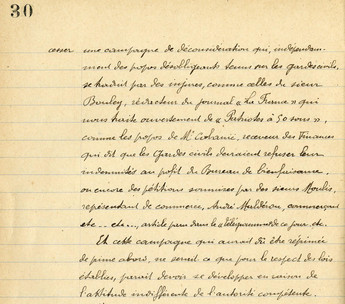 30
cesser une campagne de déconsidération qui, indépendam-
ment des propos désobligeants tenus sur les gardes civils,
se traduit par des injures, comme celles du sieur
rédacteur du journal "La France" qui
nous traite ouvertement de "Patriotes à 50 sous",
comme les propos de Mr receveur des Finances
qui dit que les Gardes civils devraient refuser leur
indemnités au profit du Bureau de bienfaisance.
ou encore des pétitions soumises par des sieurs Moulis,
représentant de commerce, André commerçant
etc -- etc --, article paru dans le "Télégramme" de ce jour, etc.
Et cette campagne qui aurait dû être réprimée
de prime abord, ne serait-ce que pour le respect des lois
établies, paraît devoir se développer en raison de
l'attitude indifférente de l'autorité compétente.